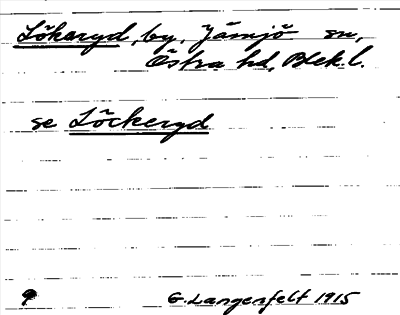 Lökaryd, by, Jämjö sn,
Östra hd, Blek. l.
se Löckeryd
G. Langenfelt 1915